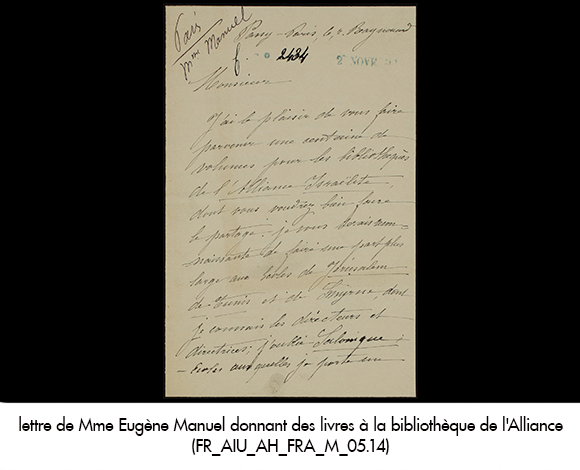 Paris
Mme Manuel
Passy-Paris, 6, r. Raynouard
2434
2 NOVE
Monsieur
J'ai le plaisir de vous faire
parvenir une centaine de
volumes pour les bibliothèques
de l'Alliance Israélite,
dont vous voudrez bien faire
le partage : je vous serais recon=
naissante de faire une part plus
large aux écoles de Jérusalem
de Tunis et de Smyrne, dont
je connais les directeurs et
directrices; j'oublie Salonique;
- Écoles auxquelles je porte un
lettre de Mme Eugène Manuel donnant des livres à la bibliothèque de l'Alliance
(FR_AIU_AH_FRA_M_05.14)